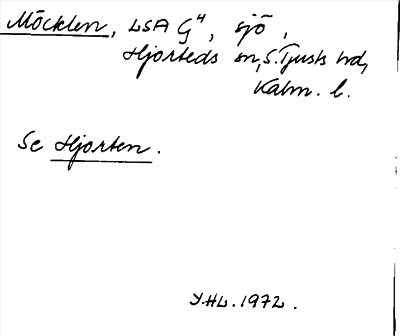 Möcklen, LSA G⁴, sjö,
Hjorteds sn, S. Tjusts hd,
Kalm. l.
Se Hjorten.
Y.HL. 1972.